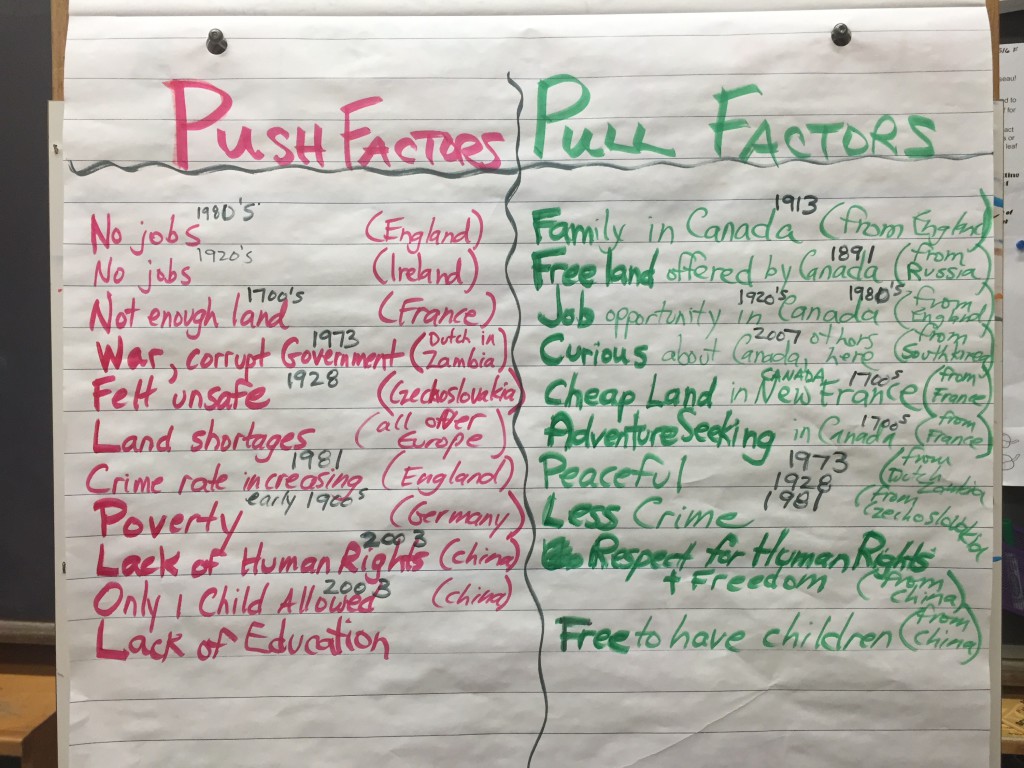 PUSH FACTORS
No jobs 1980's (England)
No jobs 1920's (Ireland)
Not enough land 1700's (France)
War, corrupt Government 1973 (Dutch in Zambia)
Felt unsafe 1928 (Czechoslovakia)
Land shortages (all over Europe)
Crime rate increasing 1981 (England)
Poverty early 1900s (Germany)
Lack of Human Rights 2003 (china)
Only 1 Child Allowed 2003 (china)
Lack of Education
PULL FACTORS
Family in Canada 1913 (from England)
Free land offered by Canada 1891 (from Russia)
Job opportunity in Canada 1920's 1980's (from England)
Curious about Canada, 2007 others here (from South Korea)
Cheap Land in New France CANADA 1700s (from France)
Adventure Seeking in Canada 1700s (from France)
Peaceful 1973 1928 (from Dutch Zambia)
Less Crime 1981 (from Czechoslovakia)
Respect for Human Rights
+ Freedom (from China)
Free to have children (from China)